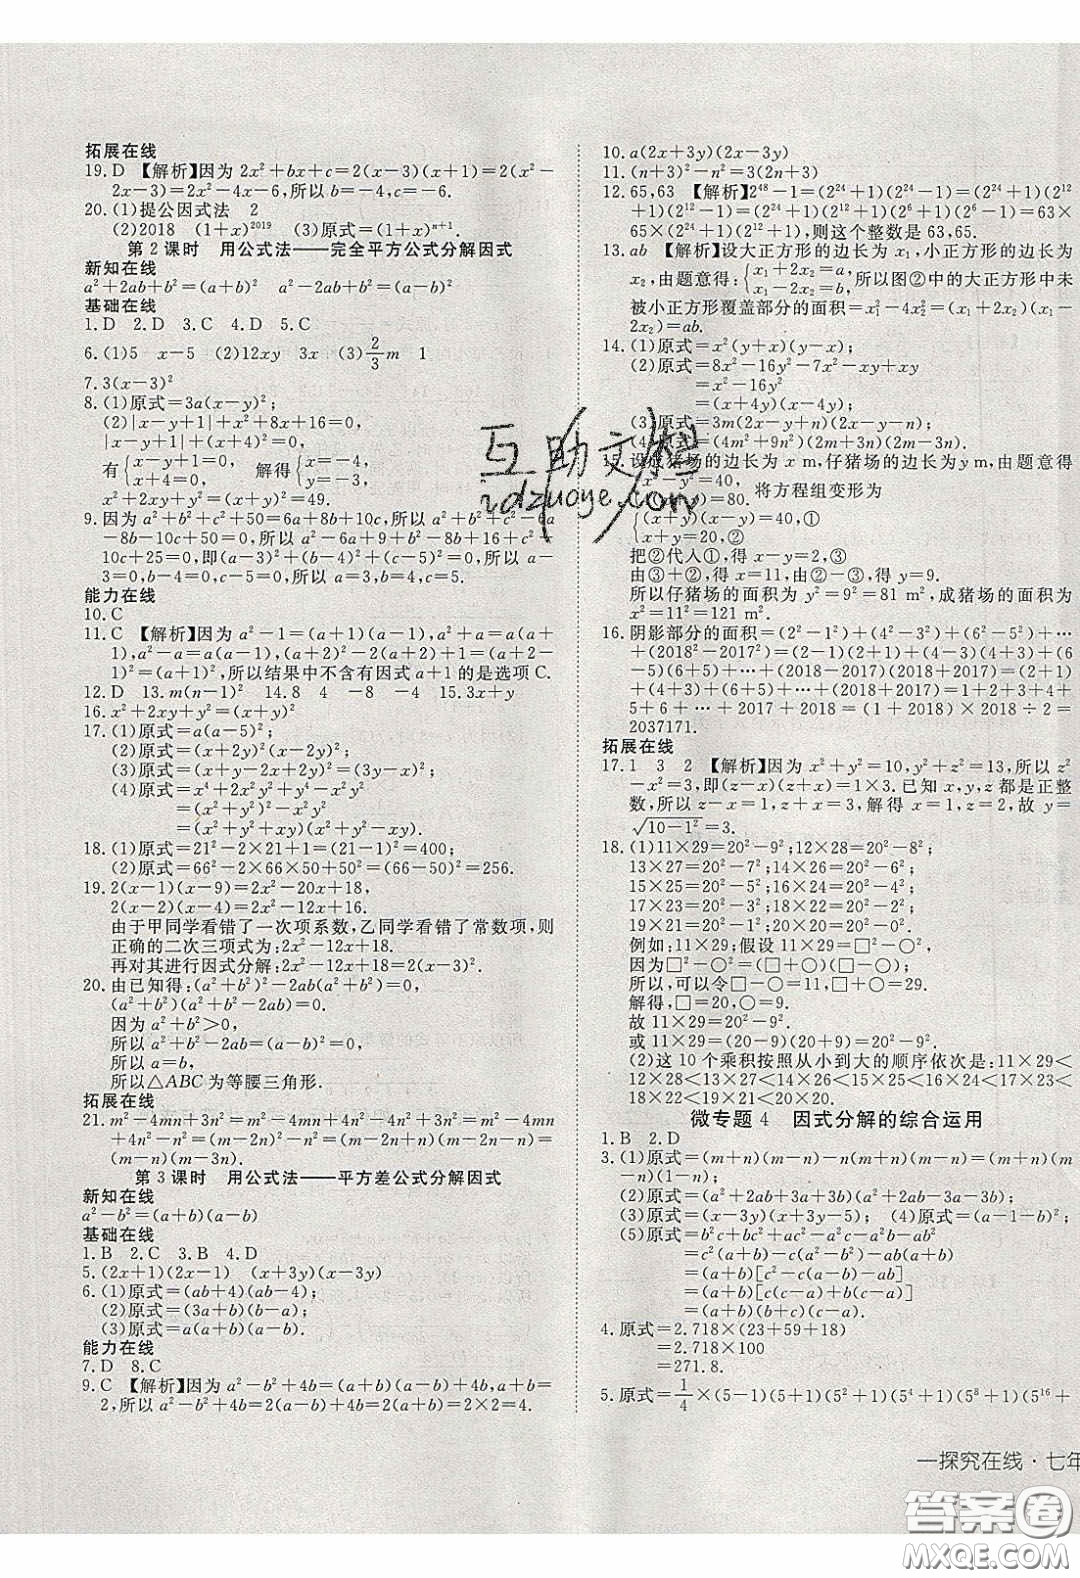 拓展在线
19. D 【解析】因为 2x²+bx+c=2(x-3)(x+1)=2(x²-
2x-3)=2x²-4x-6,所以 b=-4,c=-6.
20. (1)提公因式法 2
(2)2018 (1+x)²⁰¹⁹ (3)原式=(1+x)ⁿ⁺¹.
第 2 课时 用公式法——完全平方公式分解因式
新知在线
a²+2ab+b²=(a+b)² a²-2ab+b²=(a-b)²
基础在线
1. D 2. D 3. C 4. D 5. C
6. (1)5 x-5 (2)12xy 3x (3)2/3m 1
7. 3(x-3)²
8. (1)原式=3a(x-y)²;
(2)|x-y+1|+x²+8x+16=0,
|x-y+1|+(x+4)²=0,
有{x-y+1=0, x+4=0, 解得{x=-4, y=-3,
x²+2xy+y²=(x+y)²=49.
9. 因为 a²+b²+c²+50=6a+8b+10c,所以 a²+b²+c²-6a
-8b-10c+50=0,所以 a²-6a+9+b²-8b+16+c²-
10c+25=0,即(a-3)²+(b-4)²+(c-5)²=0,所以 a-
3=0,b-4=0,c-5=0,所以 a=3,b=4,c=5.
能力在线
10. C
11. C 【解析】因为 a²-1=(a+1)(a-1),a²+a=a(a+
1),a²-a=a(a-1),(a+2)²-2(a+2)+1=(a+2-
1)²=(a+1)²,所以结果中不含有因式 a+1 的是选项 C.
12. D 13. m(n-1)² 14. 8 4 -8 -4 15. 3x+y
16. x²+2xy+y²=(x+y)²
17. (1)原式=a(a-5)²;
(2)原式=(x+2y)²(x-2y)²;
(3)原式=(3a+3b-1)²;
(4)原式=x⁴+2x²y²+y⁴-x²y²
=(x²+y²)²-x²y²
=(x²+y²+xy)(x²+y²-xy).
18. (1)原式=21²-2×21+1=(21-1)²=400;
(2)原式=66²-2×66×50+50²=(66-50)²=256.
19. 2(x-1)(x-9)=2x²-20x+18,
2(x-2)(x-4)=2x²-12x+16.
由于甲同学看错了一次项系数,乙同学看错了常数项,则
正确的二次三项式为:2x²-12x+18.
再对其进行因式分解:2x²-12x+18=2(x-3)².
20. 由已知得:(a²+b²)²-2ab(a²+b²)=0,
(a²+b²)(a²+b²-2ab)=0.
因为 a²+b²>0,
所以 a²+b²-2ab=(a-b)²=0,
所以 a=b,
所以△ABC为等腰三角形.
拓展在线
21. m²-4mn+3n²=m²-4mn+4n²-n²=(m²-4mn
+4n²)-n²=(m-2n)²-n²=(m-2n-n)(m-2n+n)=
(m-n)(m-3n).
第 3 课时 用公式法——平方差公式分解因式
新知在线
a²-b²=(a+b)(a-b)
基础在线
1. B 2. C 3. B 4. D
5. (2x+1)(2x-1) (x+3y)(x-3y)
6. (1)原式=(ab+4)(ab-4);
(2)原式=(3a+b)(a-b);
(3)原式=(a-1)(a-b)(a+b).
能力在线
7. D 8. C
9. C 【解析】因为 a²-b²+4b=(a+b)(a-b)+4b,a+b=
2,所以 a²-b²+4b=2(a-b)+4b=2(a+b)=2×2=4.
10. a(2x+3y)(2x-3y)
11. (n+3)²-n²=3(2n+3)
12. 65,63 【解析】2⁴⁸-1=(2²⁴+1)(2²⁴-1)=(2²⁴+1)(2¹²
+1)(2¹²-1)=(2²⁴+1)(2¹²+1)(2⁶+1)(2⁶-1)=63×
65×(2²⁴+1)(2¹²+1),则这个整数是 63,65.
13. ab 【解析】设大正方形的边长为 x₁,小正方形的边长为
x₂,由题意得:{x₁+2x₂=a, x₁-2x₂=b, 所以图②中的大正方形中未
被小正方形覆盖部分的面积=x₁²-4x₂²=(x₁+2x₂)(x₁-
2x₂)=ab.
14. (1)原式=x²(y+x)(y-x);
(2)原式=8x²-16y²-7x²-xy+xy
=x²-16y²
=(x+4y)(x-4y);
(3)原式=3m(2x-y+n)(2x-y-n);
(4)原式=(4m²+9n²)(2m+3n)(2m-3n).
15. 设成猪场的边长为 x m,仔猪场的边长为 y m,由题意得
{x²-y²=40, 4(x+y)=80. 将方程组变形为
{(x+y)(x-y)=40,① x+y=20,②
把②代入①,得 x-y=2,③
由③+②,得 x=11,由②-③,得 y=9.
所以仔猪场的面积为 y²=9²=81 m²,成猪场的面积为
x²=11²=121 m².
16. 阴影部分的面积=(2²-1²)+(4²-3²)+(6²-5²)+…
+(2018²-2017²)=(2-1)(2+1)+(4-3)(4+3)+(6
-5)(6+5)+…+(2018-2017)(2018+2017)=(2+1)
+(4+3)+(6+5)+…+(2018+2017)=1+2+3+4+
5+6+…+2017+2018=(1+2018)×2018÷2=
2037171.
拓展在线
17. 1 3 2 【解析】因为 x²+y²=10,y²+z²=13,所以 z²
-x²=3,即(z-x)(z+x)=1×3.已知 x,y,z都是正整
数,所以 z-x=1,z+x=3,解得 x=1,z=2,故 y=
√10-1²=3.
18. (1)11×29=20²-9²;12×28=20²-8²;
13×27=20²-7²;14×26=20²-6²;
15×25=20²-5²;16×24=20²-4²;
17×23=20²-3²;18×22=20²-2²;
19×21=20²-1²;20×20=20²-0².
例如:11×29;假设 11×29=□²-○²,
因为□²-○²=(□+○)(□-○),
所以,可以令□-○=11,□+○=29.
解得,□=20,○=9.
故 11×29=20²-9².
或 11×29=(20-9)(20+9)=20²-9².
(2)这 10 个乘积按照从小到大的顺序依次是:11×29<
12×28<13×27<14×26<15×25<16×24<17×23
<18×22<19×21<20×20.
微专题 4 因式分解的综合运用
1. B 2. D
3. (1)原式=(m+n)(m-n)-(m-n)=(m-n)(m+n-1);
(2)原式=(a²+2ab+3a)(a²-2ab-3a-3b);
(3)原式=(x-3y)(x-3y-5); (4)原式=(a-1-b)²;
(5)原式=b²c+bc²+ac²-a²c-a²b-ab²
=c²(a+b)-c(a²-b²)-ab(a+b)
=(a+b)[c²-c(a-b)-ab]
=(a+b)[c(c-a)+b(c-a)]
=(a+b)(b+c)(c-a).
4. 原式=2.718×(23+59+18)
=2.718×100
=271.8.
5. 原式=1/4×(5-1)(5+1)(5²+1)(5⁴+1)(5⁸+1)(5¹⁶+
—探究在线·七年
互助文档
zdzuoye.com
答案圈
MXQE.COM